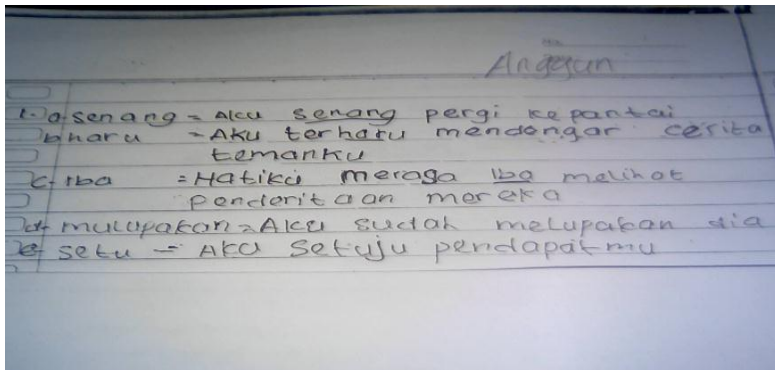 Anggun
1. a senang = Aku senang pergi kepantai
b haru = Aku terharu mendengar cerita
temanku
c. iba = Hatiku merasa iba melihat
penderitaan mereka
d mulupakan = Aku sudah melupakan dia
e setu = Aku setuju pendapatmu